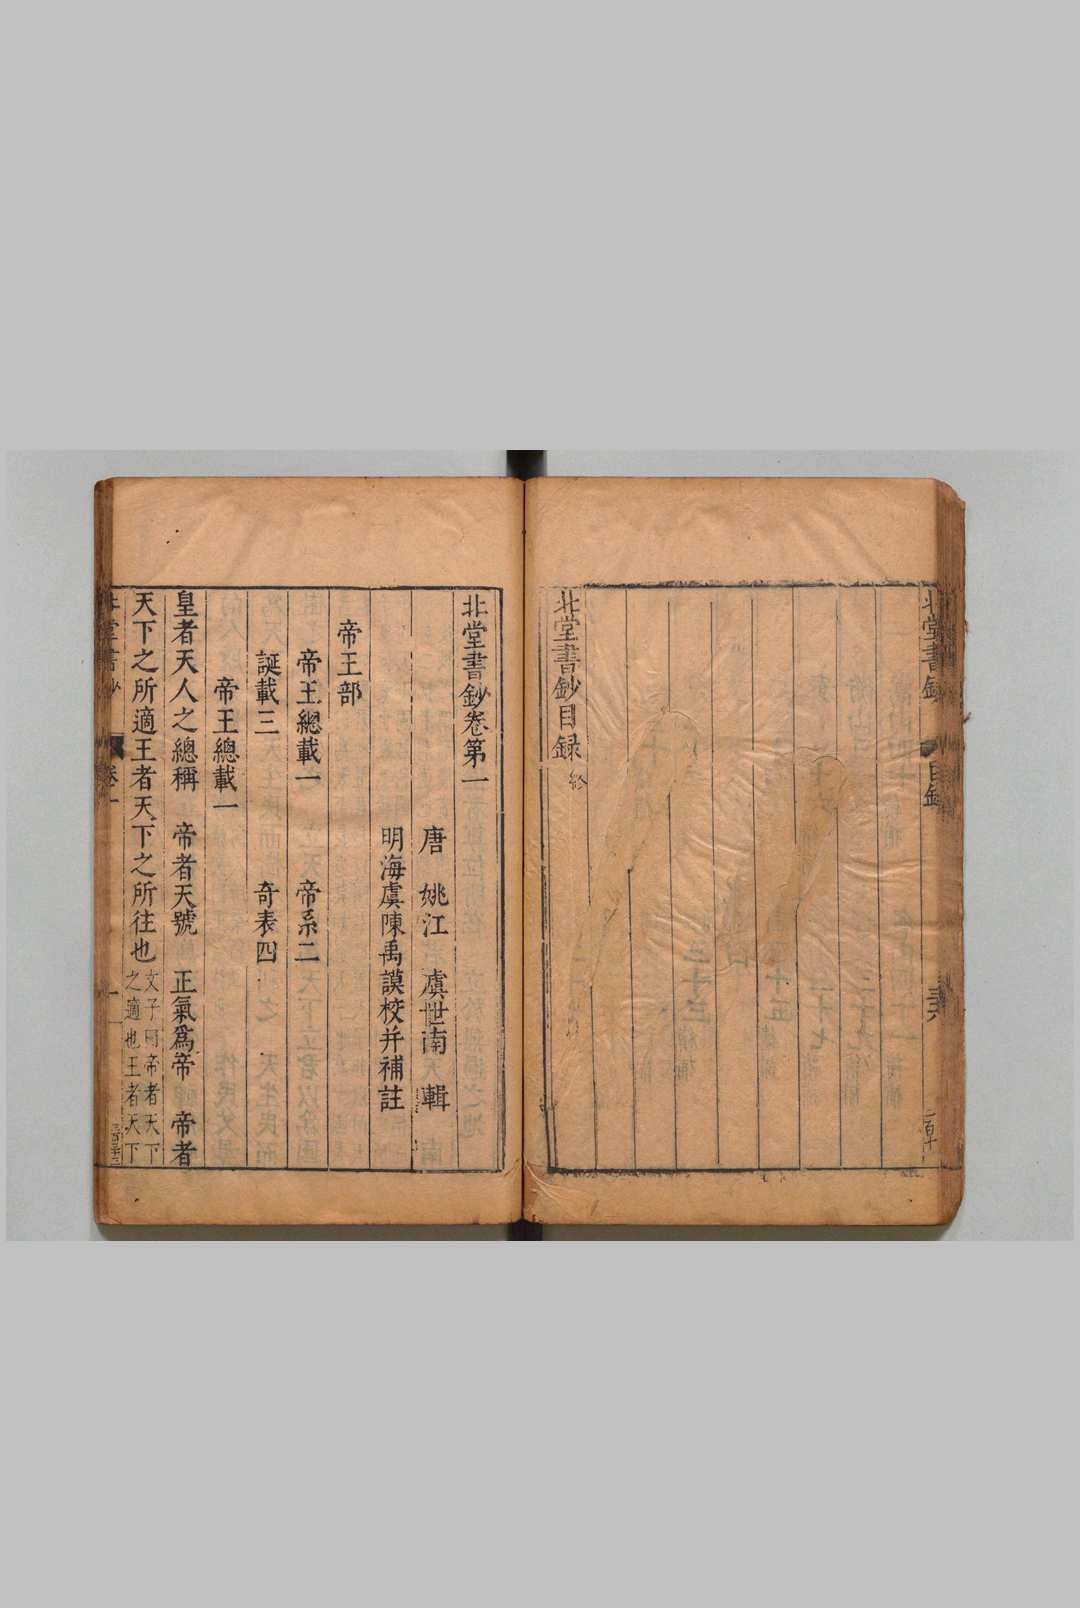 北堂書鈔
目録
北堂書鈔目録 終
北堂書鈔卷第一
唐 姚江 虞世南 輯
明海虞陳禹謨校并補註
帝王部
帝王總載一 帝系二
誕載三 奇表四
帝王總載一
皇者天人之總稱 帝者天號 正氣爲帝 帝者
天下之所適王者天下之所往也 文子曰帝者天下
之適也王者天下
北堂書鈔
卷一
一